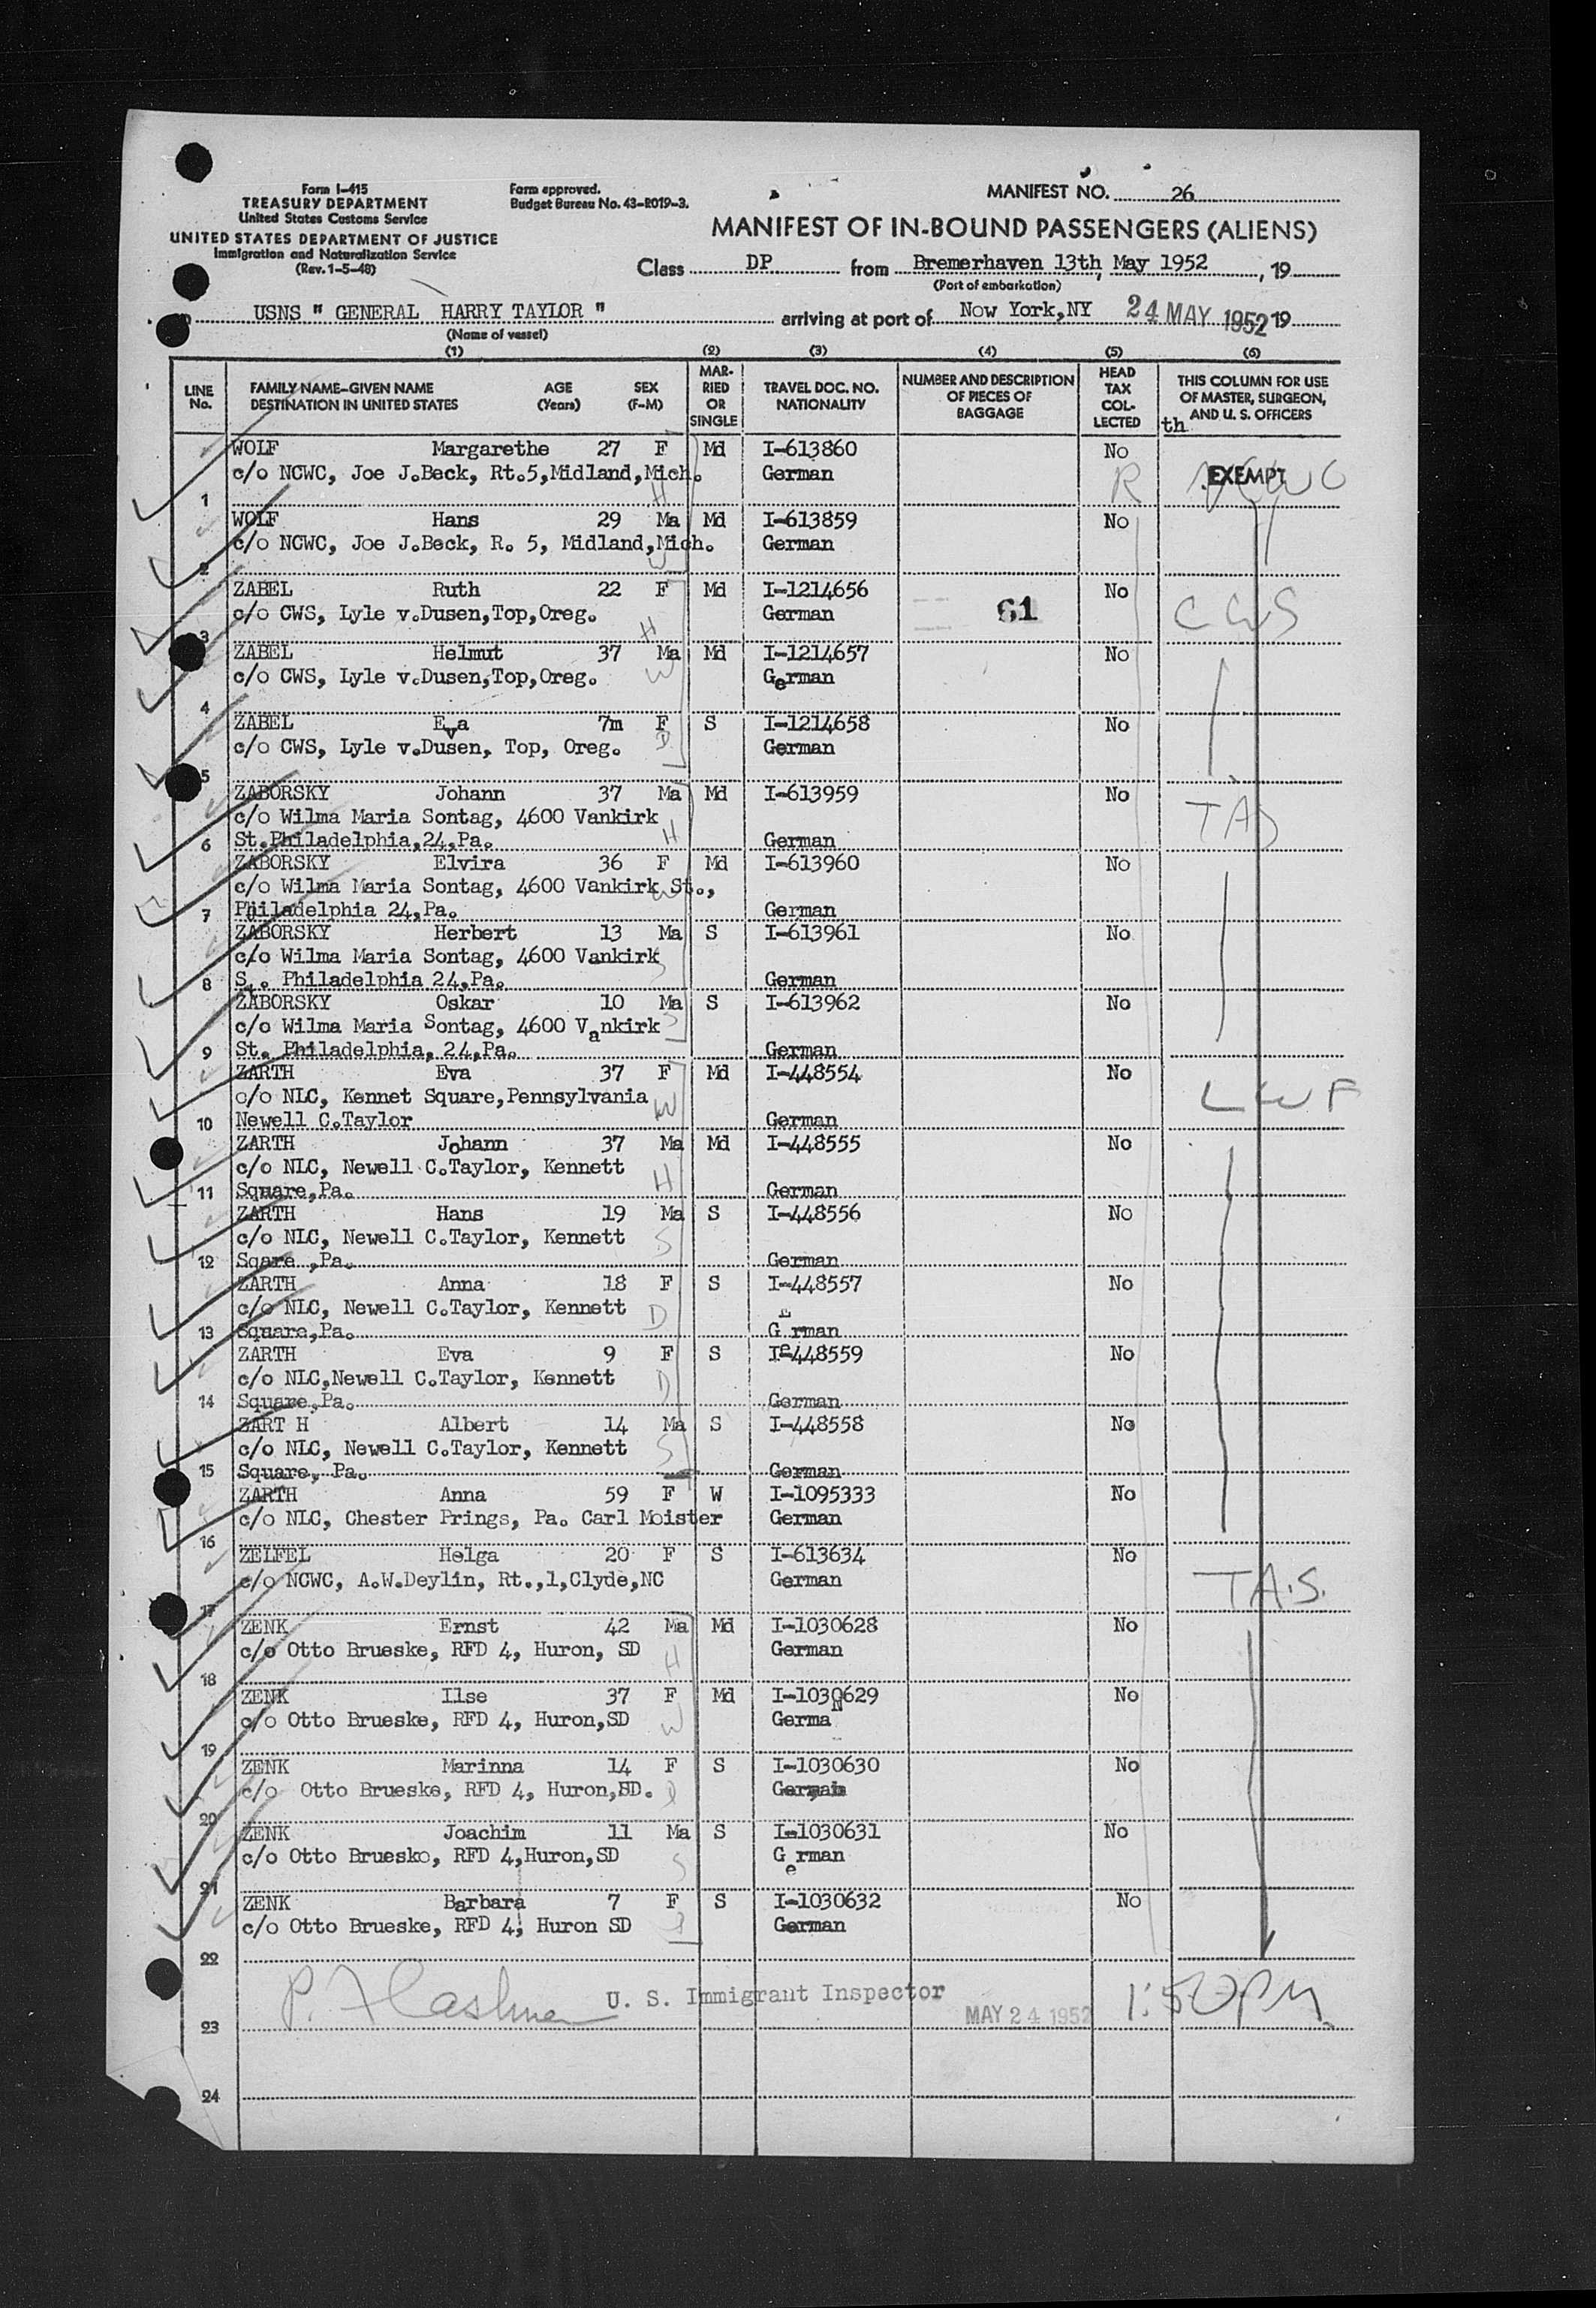 Form I-415
TREASURY DEPARTMENT
United States Customs Service
UNITED STATES DEPARTMENT OF JUSTICE
Immigration and Naturalization Service
(Rev. 1-5-48)
Form approved.
Budget Bureau No. 43-R019-3.
MANIFEST NO. 26
MANIFEST OF IN-BOUND PASSENGERS (ALIENS)
Class DP from Bremerhaven 13th, May 1952, 19
(Port of embarkation)
USNS " GENERAL HARRY TAYLOR " arriving at port of New York,NY 24 MAY 1952 19
(Name of vessel)
(1) (2) (3) (4) (5) (6)
LINE No. FAMILY NAME-GIVEN NAME DESTINATION IN UNITED STATES AGE (Years) SEX (F-M) MARRIED OR SINGLE TRAVEL DOC. NO. NATIONALITY NUMBER AND DESCRIPTION OF PIECES OF BAGGAGE HEAD TAX COLLECTED THIS COLUMN FOR USE OF MASTER, SURGEON, AND U. S. OFFICERS
th
WOLF Margarethe 27 F Md I-613860 No
c/o NCWC, Joe J.Beck, Rt.5,Midland,Mich. German R EXEMPT NCWC
1 H
WOLF Hans 29 Ma Md I-613859 No
c/o NCWC, Joe J.Beck, R. 5, Midland,Mich. German
2 W
ZABEL Ruth 22 F Md I-1214656 No
c/o CWS, Lyle v.Dusen,Top,Oreg. German 61 CWS
3 H
ZABEL Helmut 37 Ma Md I-1214657 No
c/o CWS, Lyle v.Dusen,Top,Oreg. W German
4
ZABEL Eva 7m F S I-1214658 No
c/o CWS, Lyle v.Dusen, Top, Oreg. D German
5
ZABORSKY Johann 37 Ma Md I-613959 No
c/o Wilma Maria Sontag, 4600 Vankirk TAS
6 St.Philadelphia,24,Pa. H German
ZABORSKY Elvira 36 F Md I-613960 No
c/o Wilma Maria Sontag, 4600 Vankirk St., W
7 Philadelphia 24,Pa. German
ZABORSKY Herbert 13 Ma S I-613961 No
c/o Wilma Maria Sontag, 4600 Vankirk S
8 St. Philadelphia 24,Pa. German
ZABORSKY Oskar 10 Ma S I-613962 No
c/o Wilma Maria Sontag, 4600 Vankirk S
9 St. Philadelphia, 24,Pa. German
ZARTH Eva 37 F Md I-448554 No
c/o NLC, Kennet Square,Pennsylvania W LWF
10 Newell C.Taylor German
ZARTH Johann 37 Ma Md I-448555 No
c/o NLC, Newell C.Taylor, Kennett H
11 Square,Pa. German
ZARTH Hans 19 Ma S I-448556 No
c/o NLC, Newell C.Taylor, Kennett S
12 Sqare ,Pa. German
ZARTH Anna 18 F S I-448557 No
c/o NLC, Newell C.Taylor, Kennett D
13 Square,Pa. German
ZARTH Eva 9 F S I-448559 No
c/o NLC,Newell C.Taylor, Kennett D
14 Square,Pa. German
ZART H Albert 14 Ma S I-448558 No
c/o NLC, Newell C.Taylor, Kennett S
15 Square, Pa. German
ZARTH Anna 59 F W I-1095333 No
c/o NLC, Chester Prings, Pa. Carl Moister German
16
ZELFEL Helga 20 F S I-613634 No
c/o NCWC, A.W.Deylin, Rt.,1,Clyde,NC German T.A.S.
17
ZENK Ernst 42 Ma Md I-1030628 No
c/o Otto Brueske, RFD 4, Huron, SD H German
18
ZENK Ilse 37 F Md I-1030629 No
c/o Otto Brueske, RFD 4, Huron,SD W German
19
ZENK Marinna 14 F S I-1030630 No
c/o Otto Brueske, RFD 4, Huron,SD. D German
20
ZENK Joachim 11 Ma S I-1030631 No
c/o Otto Brueske, RFD 4,Huron,SD S German
21
ZENK Barbara 7 F S I-1030632 No
c/o Otto Brueske, RFD 4, Huron SD D German
22
U. S. Immigrant Inspector MAY 24 1952 1:50PM
23
24